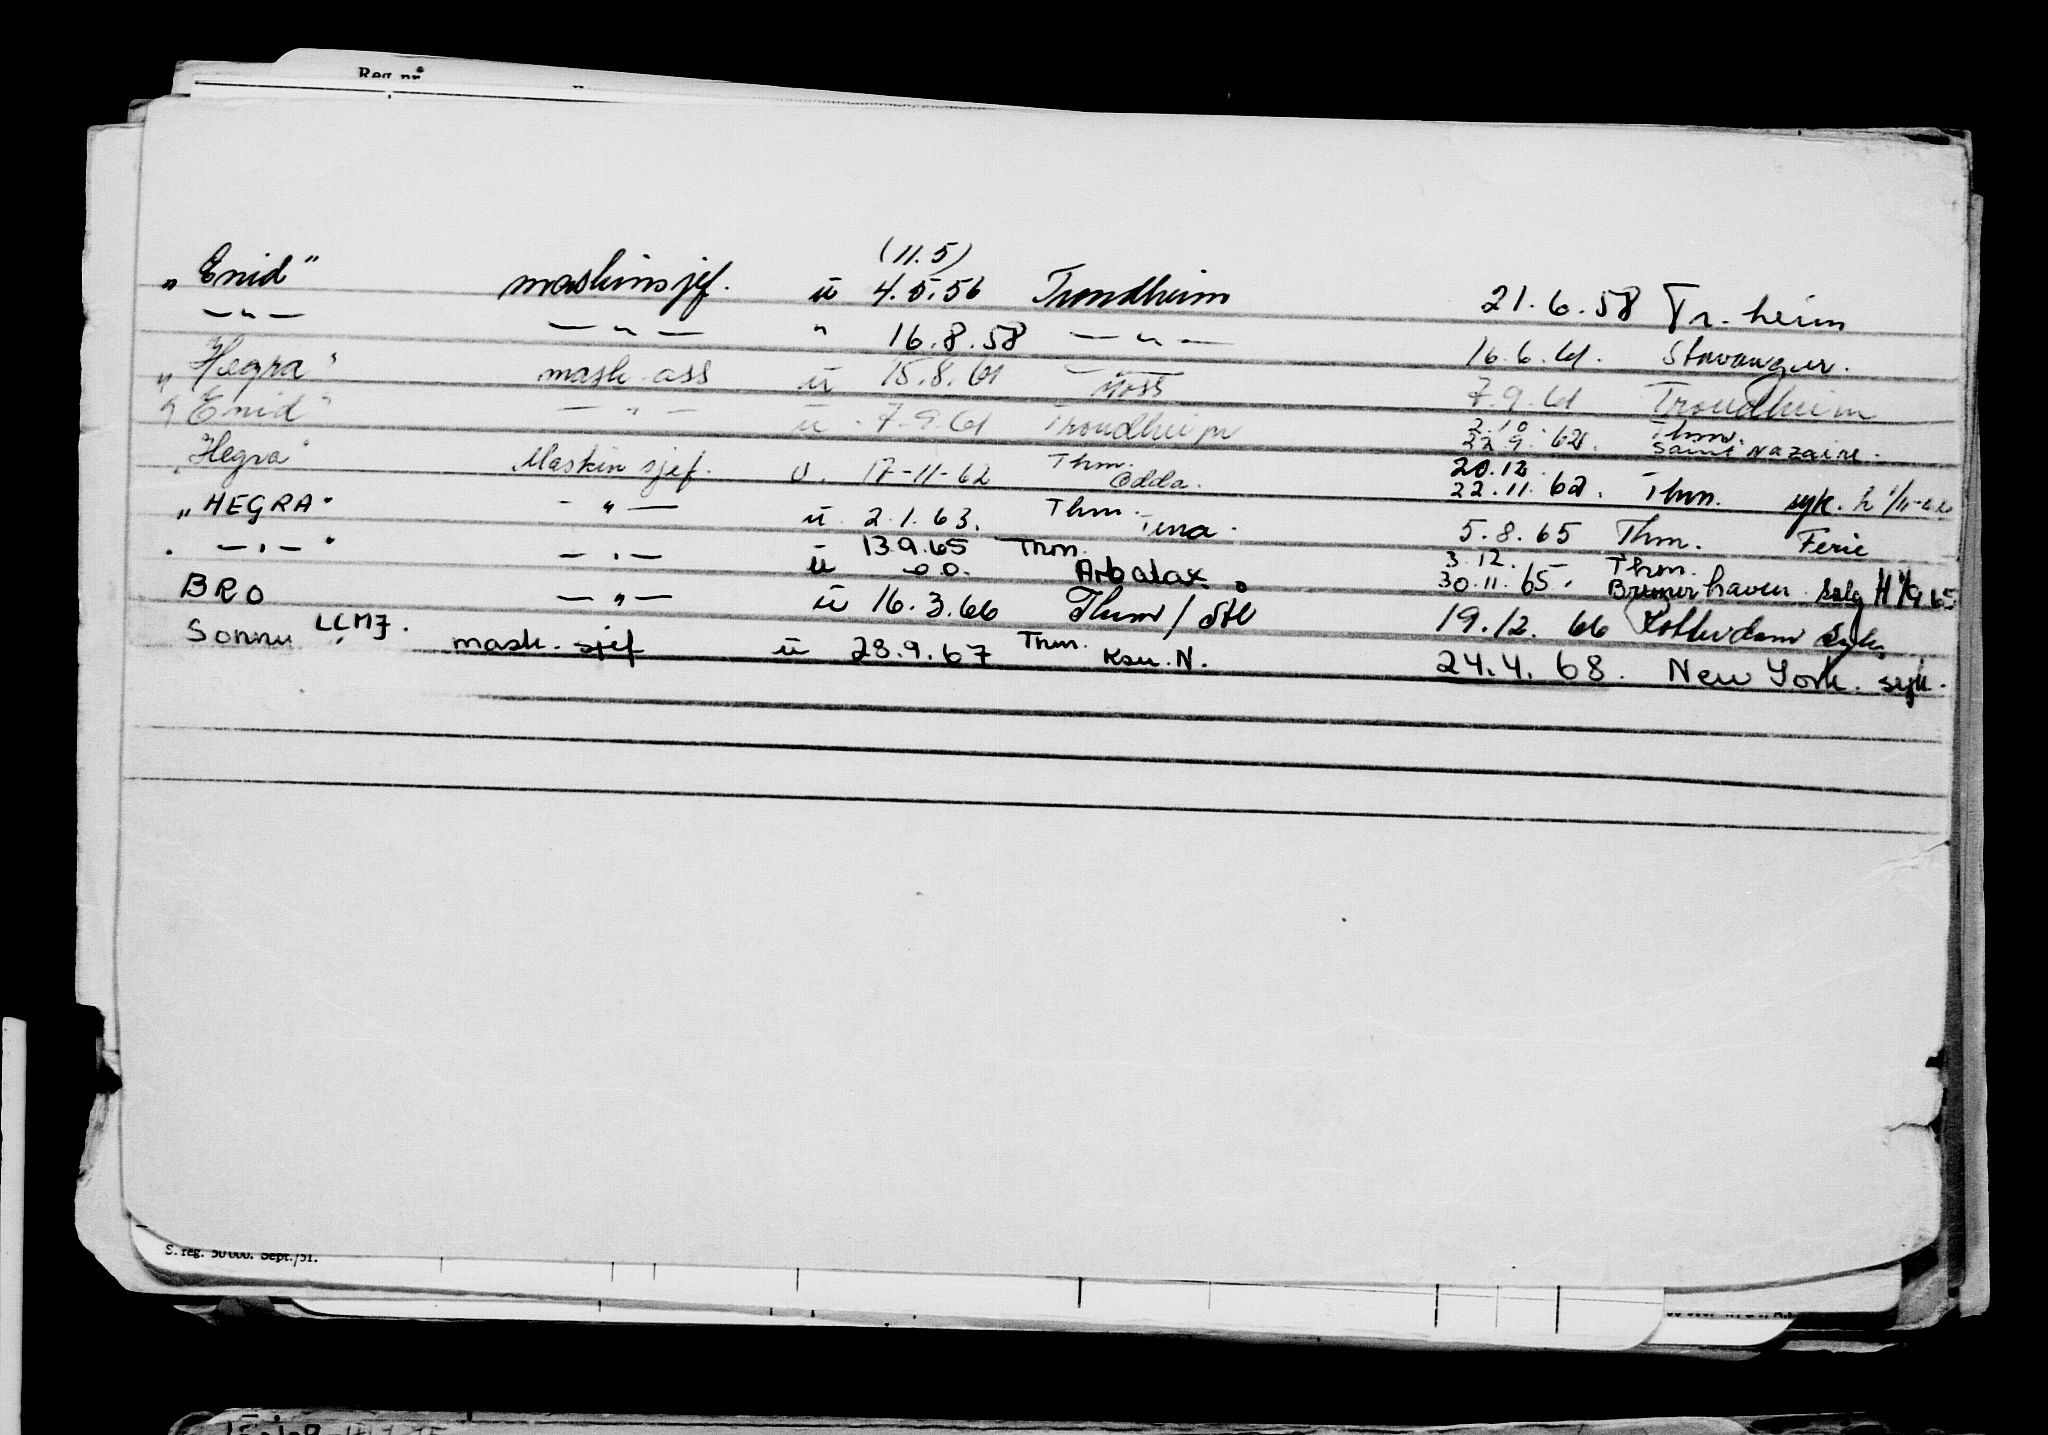 Reg. nr.
(11.5)
„Enid" maskinsjef. ü 4.5.56 Trondheim 21.6.58 Tr.heim
— „ — — „ — " 16.8.58 — „ — 16.6.61. Stavanger.
„Hegra" mask. ass ü 15.8.61 Moss 7.9.61 Trondheim
„Enid" — " — ü 7.9.61 Trondheim 2.10. Thm.
22.9.62. Saint Nazaire.
„Hegra" Maskinsjef. ü. 17-11-62 Thm. Odda. 20.12.
22.11.62. Thm. syk.
„HEGRA" — " — ü 2.1.63. Thm. 5.8.65 Thm. Ferie
— " — — " — ü 13.9.65 Thm. Arbatax 3.12. Thm.
30.11.65. Bremerhaven Salg
BRO — " — ü 16.3.66 Thm / 19.12.66 Rotterdam
LCMJ. mask. sjef ü 28.9.67 Thm. Ksu. N. 24.4.68. New York. syk.
S. reg. 50 000. Sept./51.